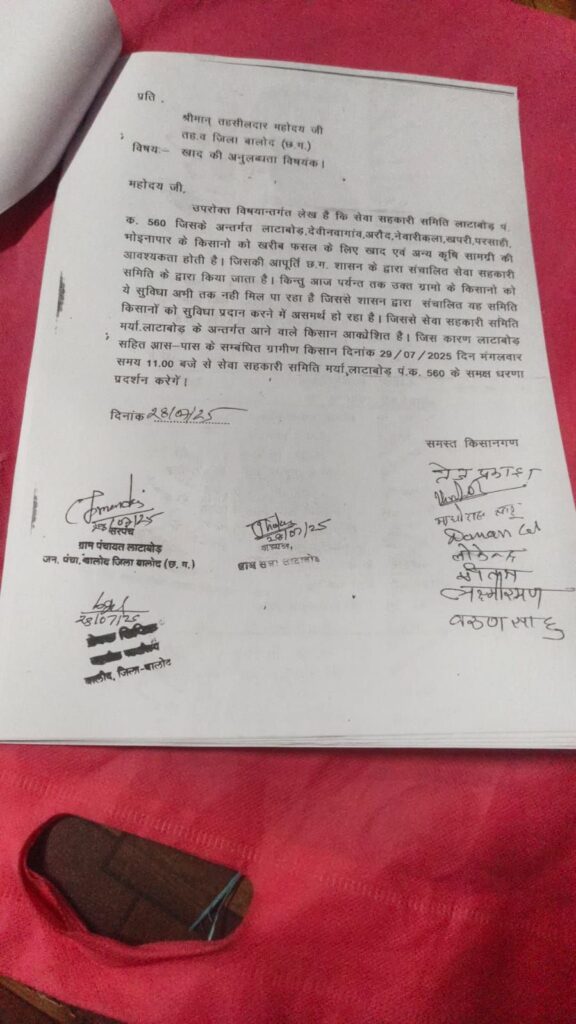 प्रति ,
श्रीमान् तहसीलदार महोदय जी
तह.व जिला बालोद (छ.ग.)
विषयः– खाद की अनुलब्धता विषयक।
महोदय जी,
उपरोक्त विषयान्तर्गत लेख है कि सेवा सहकारी समिति लाटाबोड़ पं.
क. 560 जिसके अन्तर्गत लाटाबोड़,देवीनवागांव,अरौद,नेवारीकला,खपरी,परसाही,
मोहनापार के किसानो को खरीब फसल के लिए खाद एवं अन्य कृषि सामग्री की
आवश्यकता होती है। जिसकी आपूर्ति छ.ग. शासन के द्वारा संचालित सेवा सहकारी
समिति के द्वारा किया जाता है। किन्तु आज पर्यन्त तक उक्त ग्रामो के किसानों को
ये सुविधा अभी तक नही मिल पा रहा है जिससे शासन द्वारा संचालित यह समिति
किसानों को सुविधा प्रदान करने में असमर्थ हो रहा है। जिससे सेवा सहकारी समिति
मर्या.लाटाबोड़ के अन्तर्गत आने वाले किसान आकोशित है। जिस कारण लाटाबोड़
सहित आस–पास के सम्बंधित ग्रामीण किसान दिनांक 29/07/2025 दिन मंगलवार
समय 11.00 बजे से सेवा सहकारी समिति मर्या,लाटाबोड़ पं.क. 560 के समक्ष धरणा
प्रदर्शन करेगें।
दिनांक 28/07/25
समस्त किसानगण
28/07/25
सरपंच
ग्राम पंचायत लाटाबोड़
जन. पंचा. बालोद जिला बालोद (छ. ग.)
28/07/25
अध्यक्ष,
ग्राम सभा लाटाबोड़
माधोराम साहू
Daman Lal
लक्ष्मीरमण
वरुण साहु
28/07/25
बालोद, जिला-बालोद